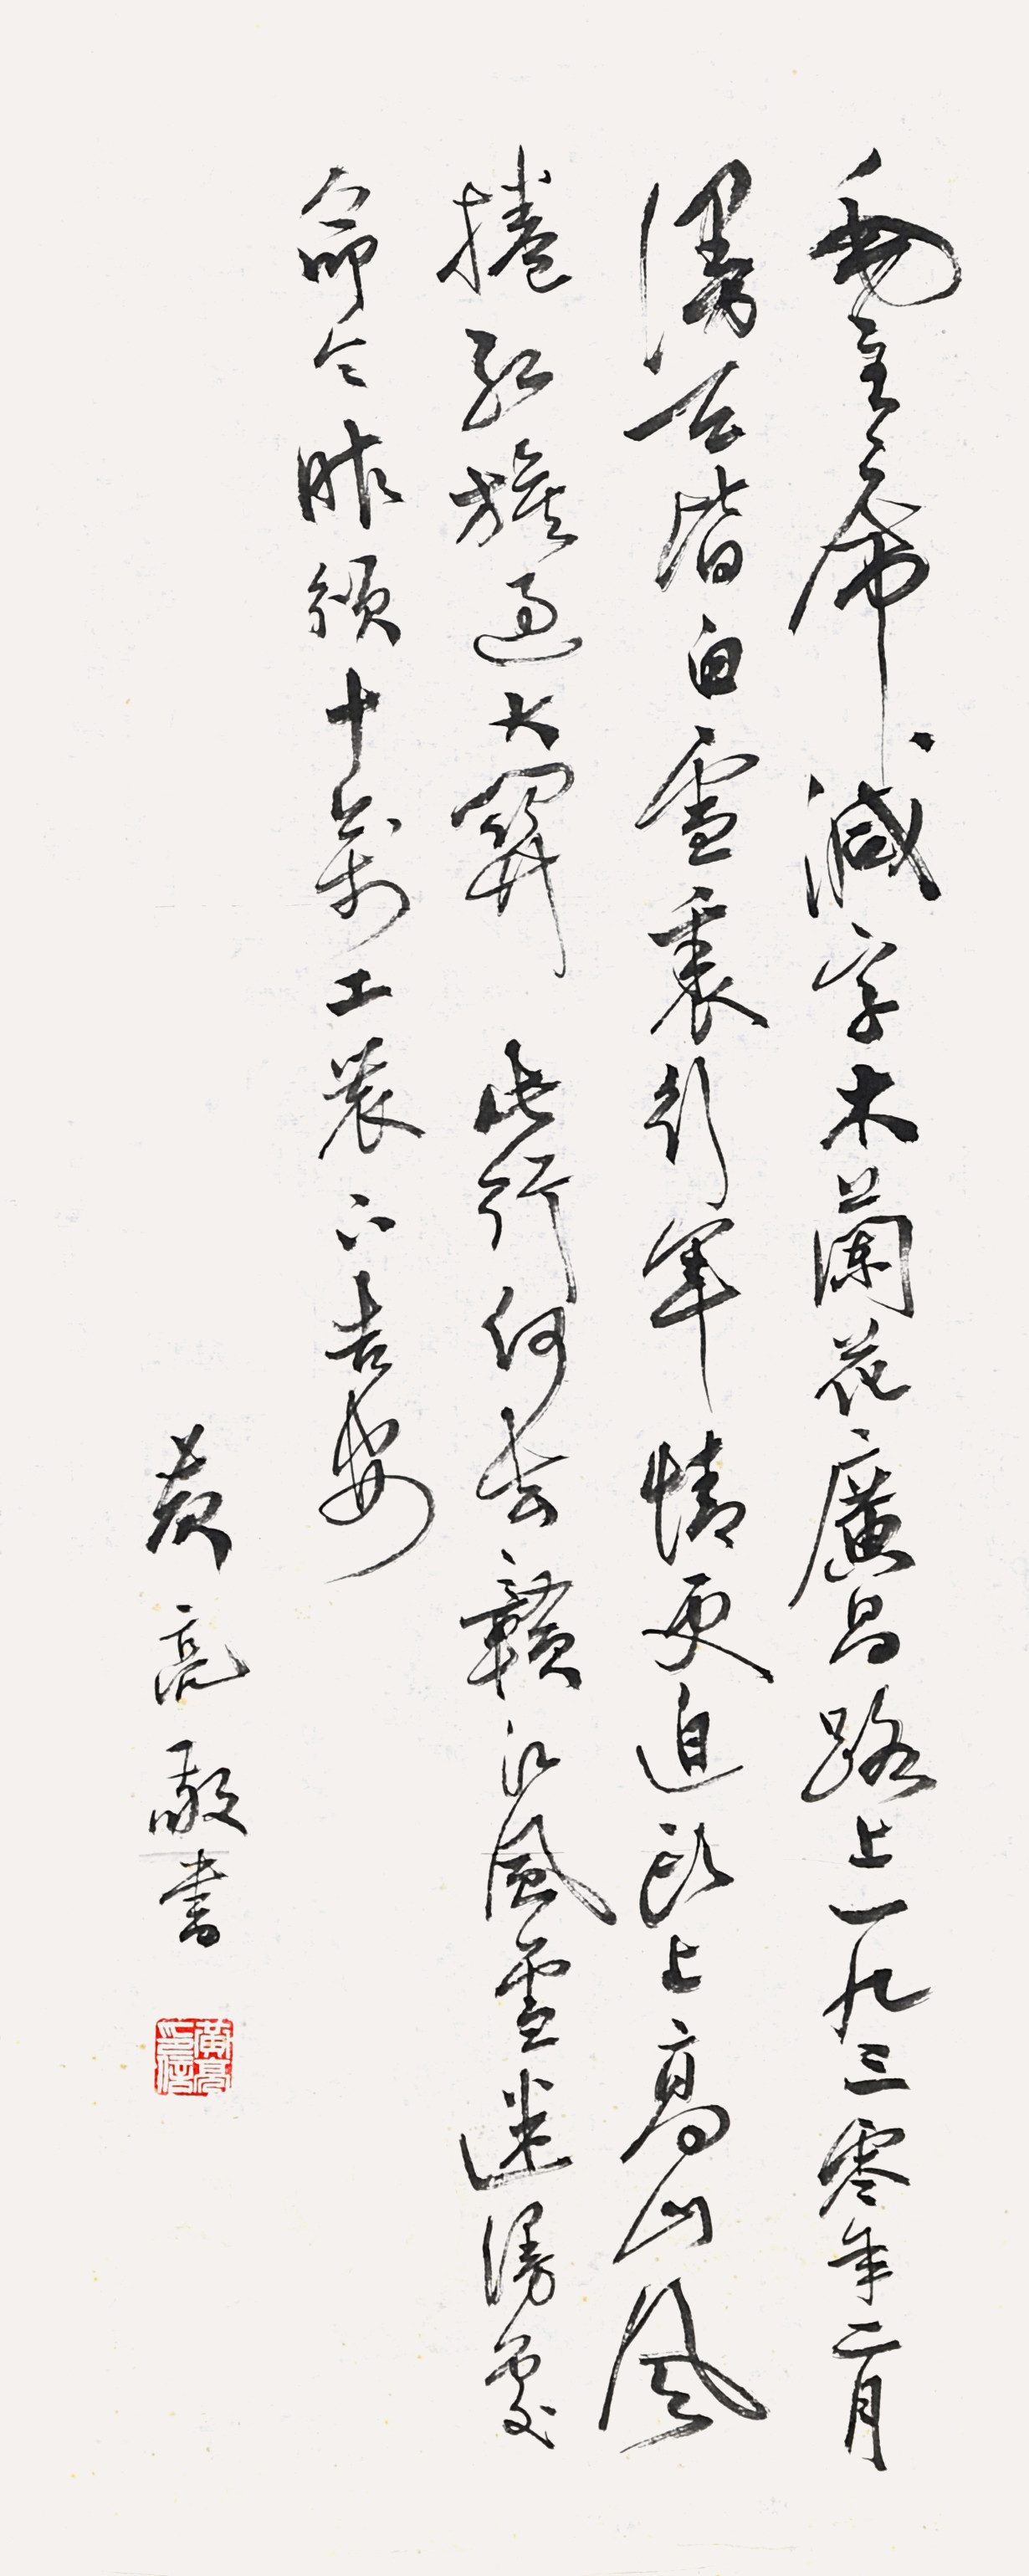 毛主席減字木蘭花廣昌路上一九三零年二月
漫天皆白雪裏行軍情更迫頭上高山風
捲紅旗過大關 此行何去贛江風雪迷漫處
命令昨頒十萬工農下吉安
黃亮敬書
黃亮印信